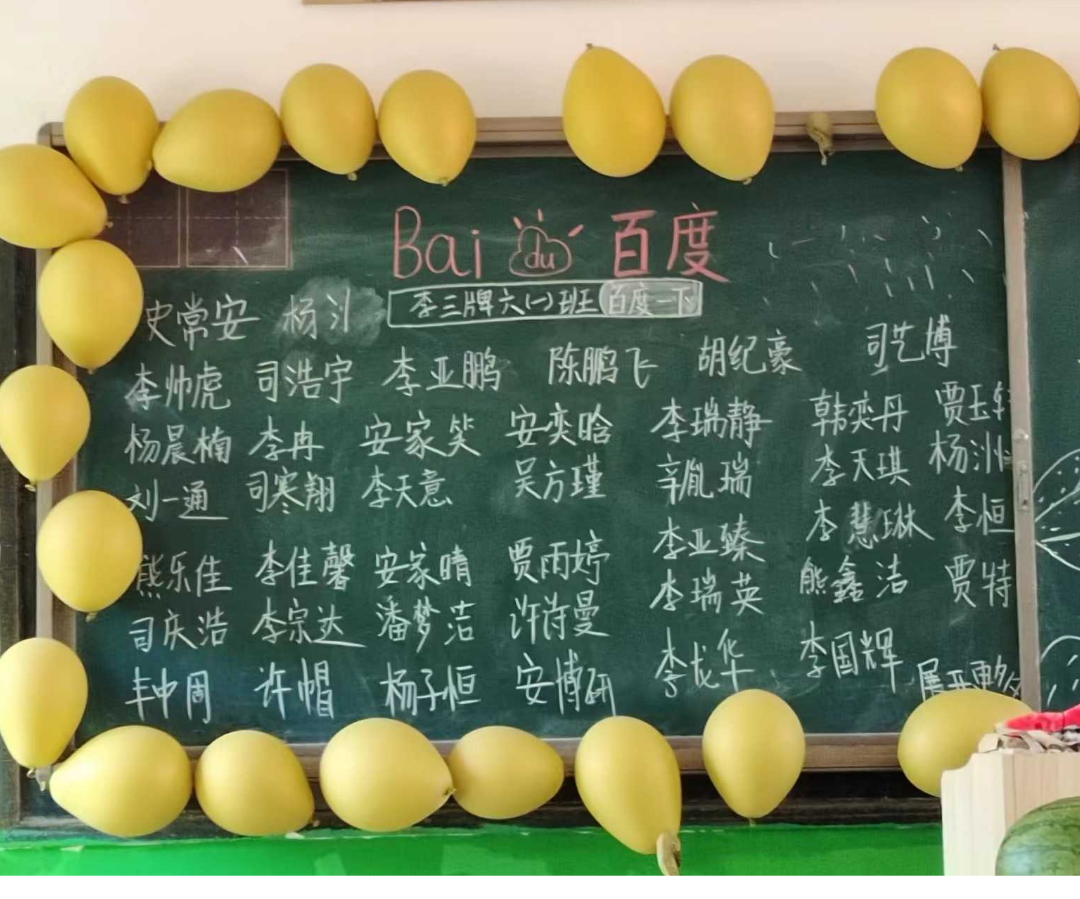 Bai du 百度
李三牌六(一)班 百度一下
史常安 杨
司艺博
李帅虎 司浩宇 李亚鹏 陈鹏飞 胡纪豪
杨晨楠 李冉 安家笑 安奕晗 李瑞静 韩奕丹 贾玉
刘一通 司寒翔 李天意 吴方瑾 辛胤瑞 李天琪 杨洲
李亚臻 李慧琳 李桓
熊乐佳 李佳馨 安家晴 贾雨婷 李瑞英 熊鑫洁 贾特
司庆浩 李宗达 潘梦洁 许诗曼
丰中周 许帽 杨子恒 安博研 李龙华 李国辉